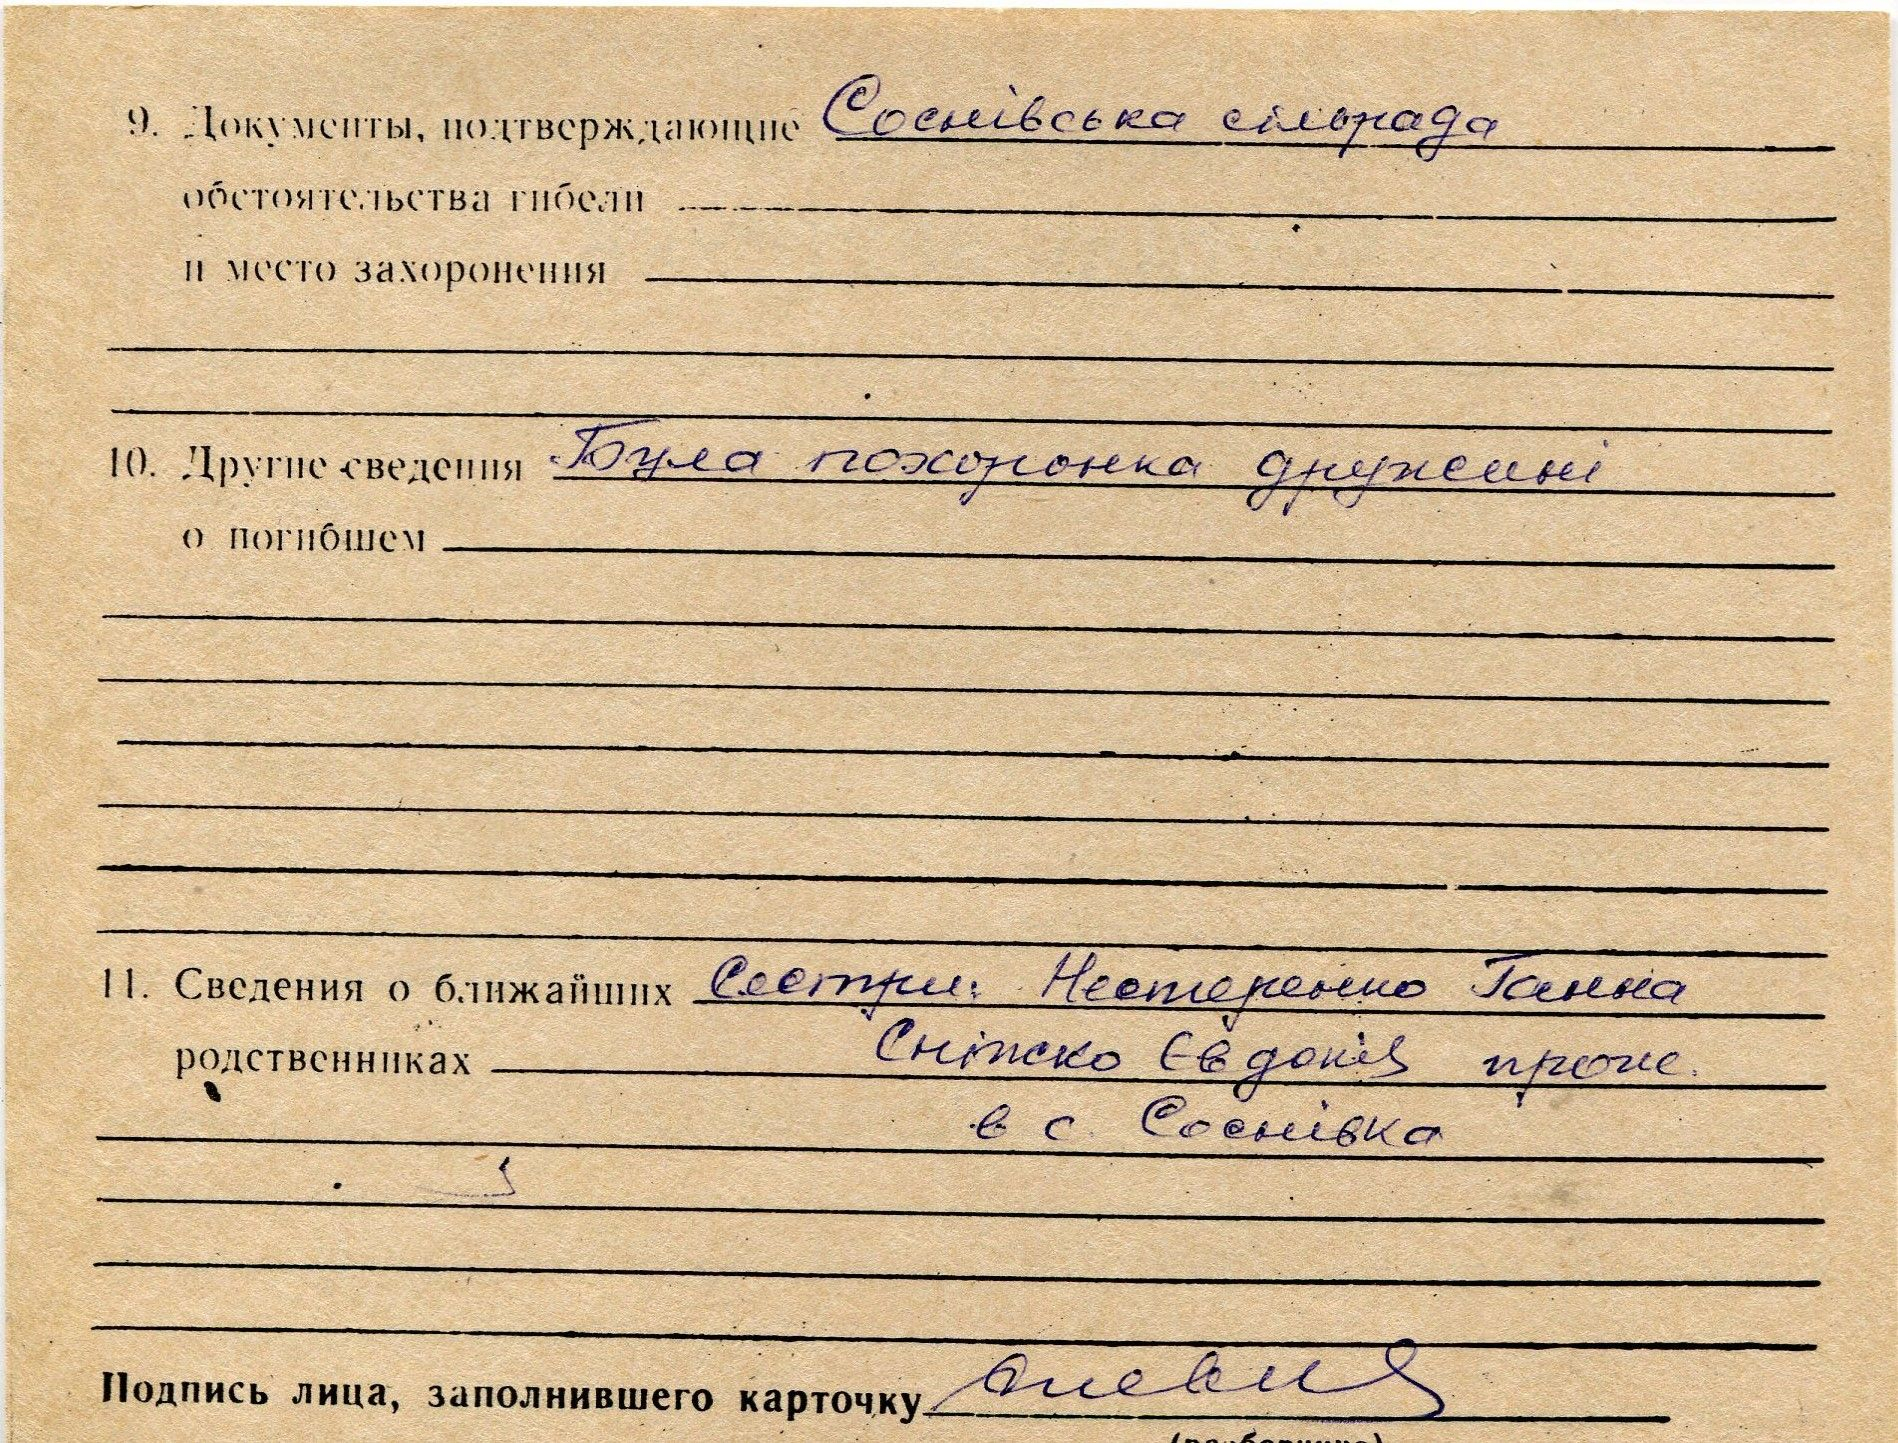 9. Документы, подтверждающие Соснівська сільрада
обстоятельства гибели
и место захоронения
10. Другие сведения Була похоронка дружині
о погибшем
11. Сведения о ближайших Сестри: Нестеренко Ганна
родственниках Сніжко Євдокія прож.
в с. Соснівка
Подпись лица, заполнившего карточку